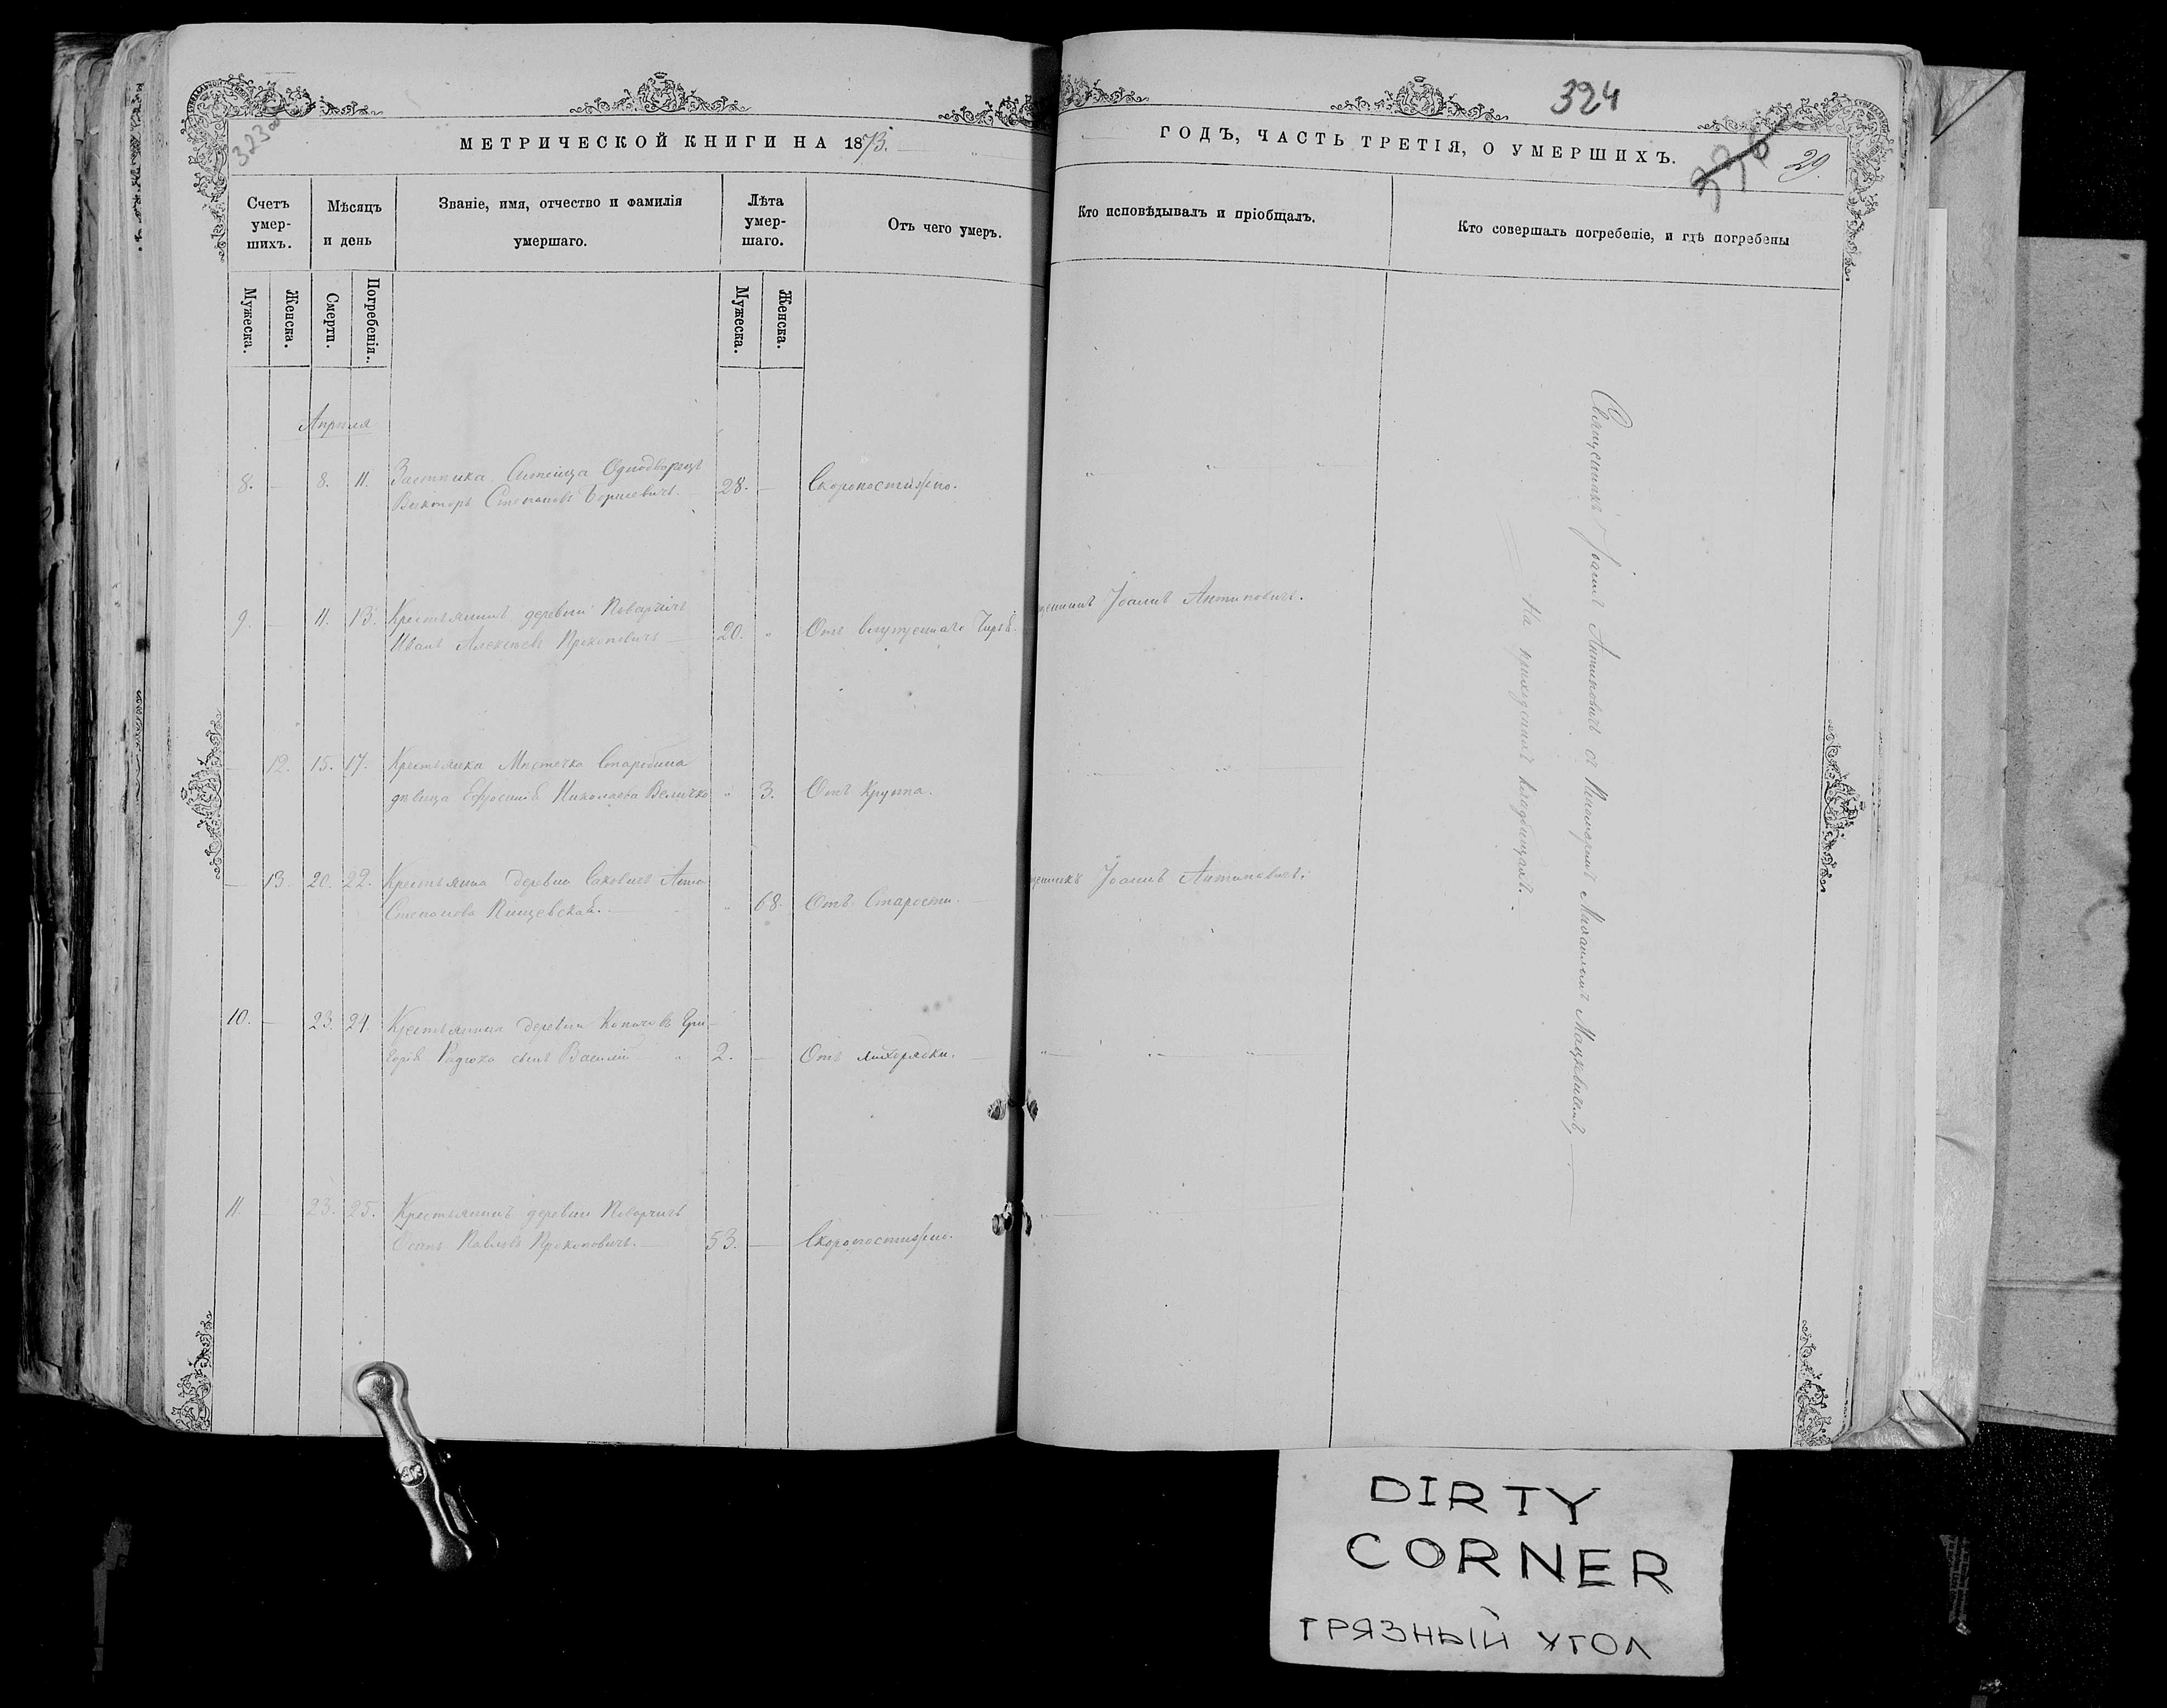 323 об
МЕТРИЧЕСКОЙ КНИГИ НА 1873.
Счетъ умер-шихъ.
Мѣсяцъ и день
Званіе, имя, отчество и фамилія умершаго.
Лѣта умер-шаго.
Отъ чего умеръ.
Мужеска.
Женска.
Смерти.
Погребенія.
Мужеска.
Женска.
Апрѣля
8. — 8. 11. Застѣнка Однодворецъ
Викторъ Степановъ Борисевичъ. 28. — Скоропостижно.
9. — 11. 13. Крестьянинъ деревни Поварчичъ
Иванъ Алексѣевъ Прокоповичъ — 20. „ Отъ внутренняго
— 12. 15. 17. Крестьянка Мѣстечка Старобина
дѣвица Николаева Величко „ 3. Отъ Крупа.
— 13. 20. 22. Крестьянка деревни Саковичъ Анна
Степанова „ 68. Отъ Старости.
10. — 23. 24. Крестьянина деревни Гри-
горія Радюка сынъ Василій „ 2. — Отъ лихорадки.
11. — 23. 25. Крестьянинъ деревни Поварчичъ
Осипъ Павловъ Прокоповичъ. — 53. — Скоропостижно.
324
29.
ГОДЪ, ЧАСТЬ ТРЕТІЯ, О УМЕРШИХЪ.
Кто исповѣдывалъ и пріобщалъ.
Кто совершалъ погребеніе, и гдѣ погребены
Іоаннъ Антиповичъ.
Іоаннъ Антиповичъ.
Священникъ Іоаннъ Антиповичъ съ Михаиломъ Мацкевичемъ,
На приходскомъ кладбищѣ.
DIRTY
CORNER
ГРЯЗНЫЙ УГОЛ